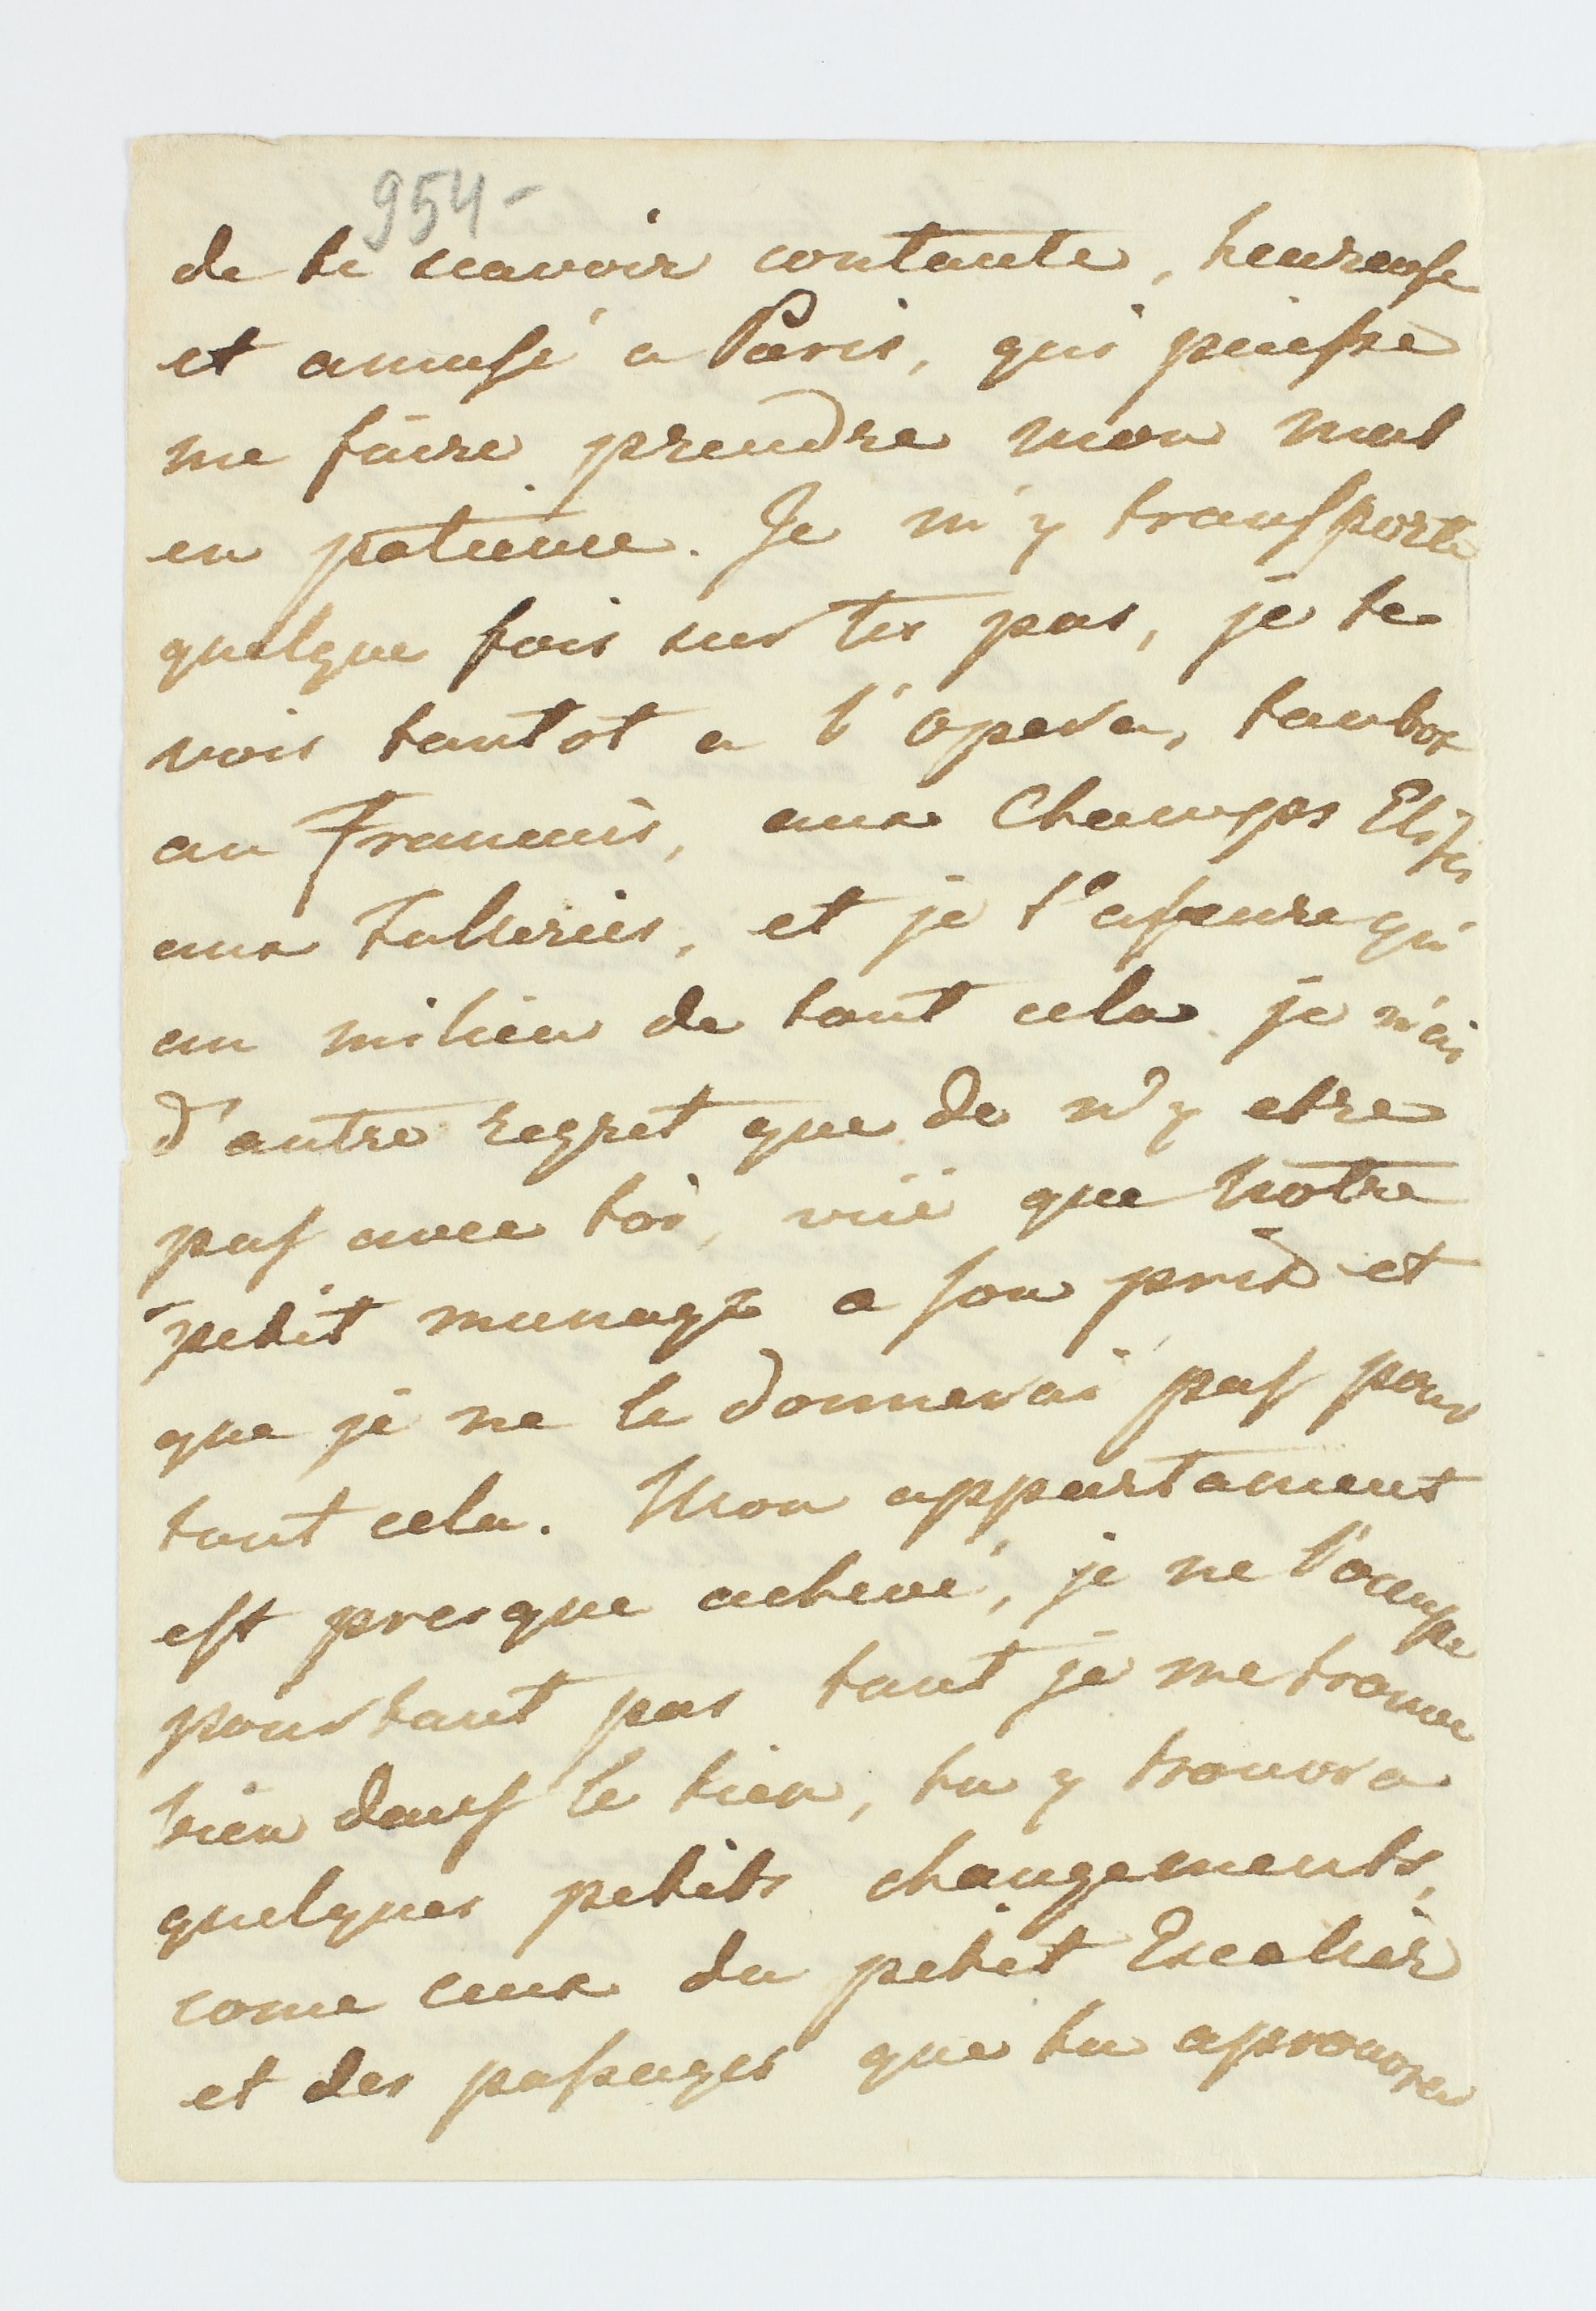 954-
de te scavoir contante, heureuse
et amusé a Paris, qui puisse
me faire prendre mon mal
en patience. Je m'y transporte
quelque fois sur tes pas, je te
vois tantot a l'opera, tantot
au Francais, aux Champs Elisés
aux Tulleries, et je t'assure qu'
au milieu de tout cela je n'ai
d'autre regret que de n'y etre
pas avec toi, vüe que notre
petit menage a son prix et
que je ne le donnerai pas pour
tout cela. Mon appartament
est presque achevé, je ne l'occupe
pourtant pas tant je me trouve
bien dans le tien, tu y trouvra
quelques petits changements,
come ceux du petit Escalier
et des passages que tu aprouvra